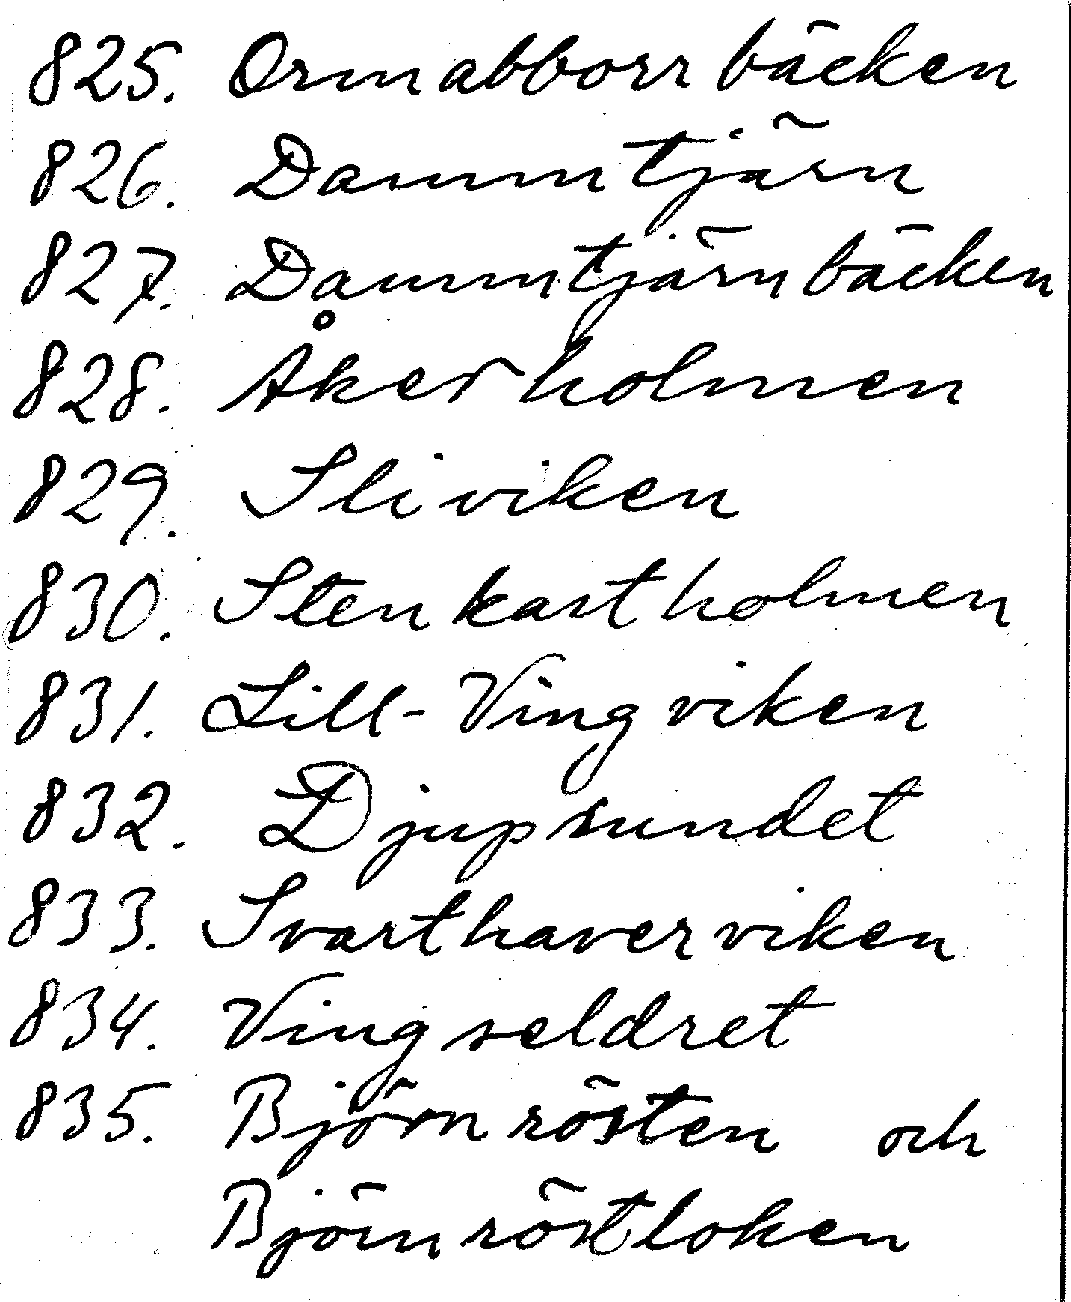 825. Ormabborrbäcken
826. Dammtjärn
827. Dammtjärnbäcken
828. Åkerholmen
829. Sliviken
830. Stenkastholmen
831. Lill-Vingviken
832. Djupsundet
833. Svarthaverviken
834. Vingseldret
835. Björnrösten och
Björnröstloken